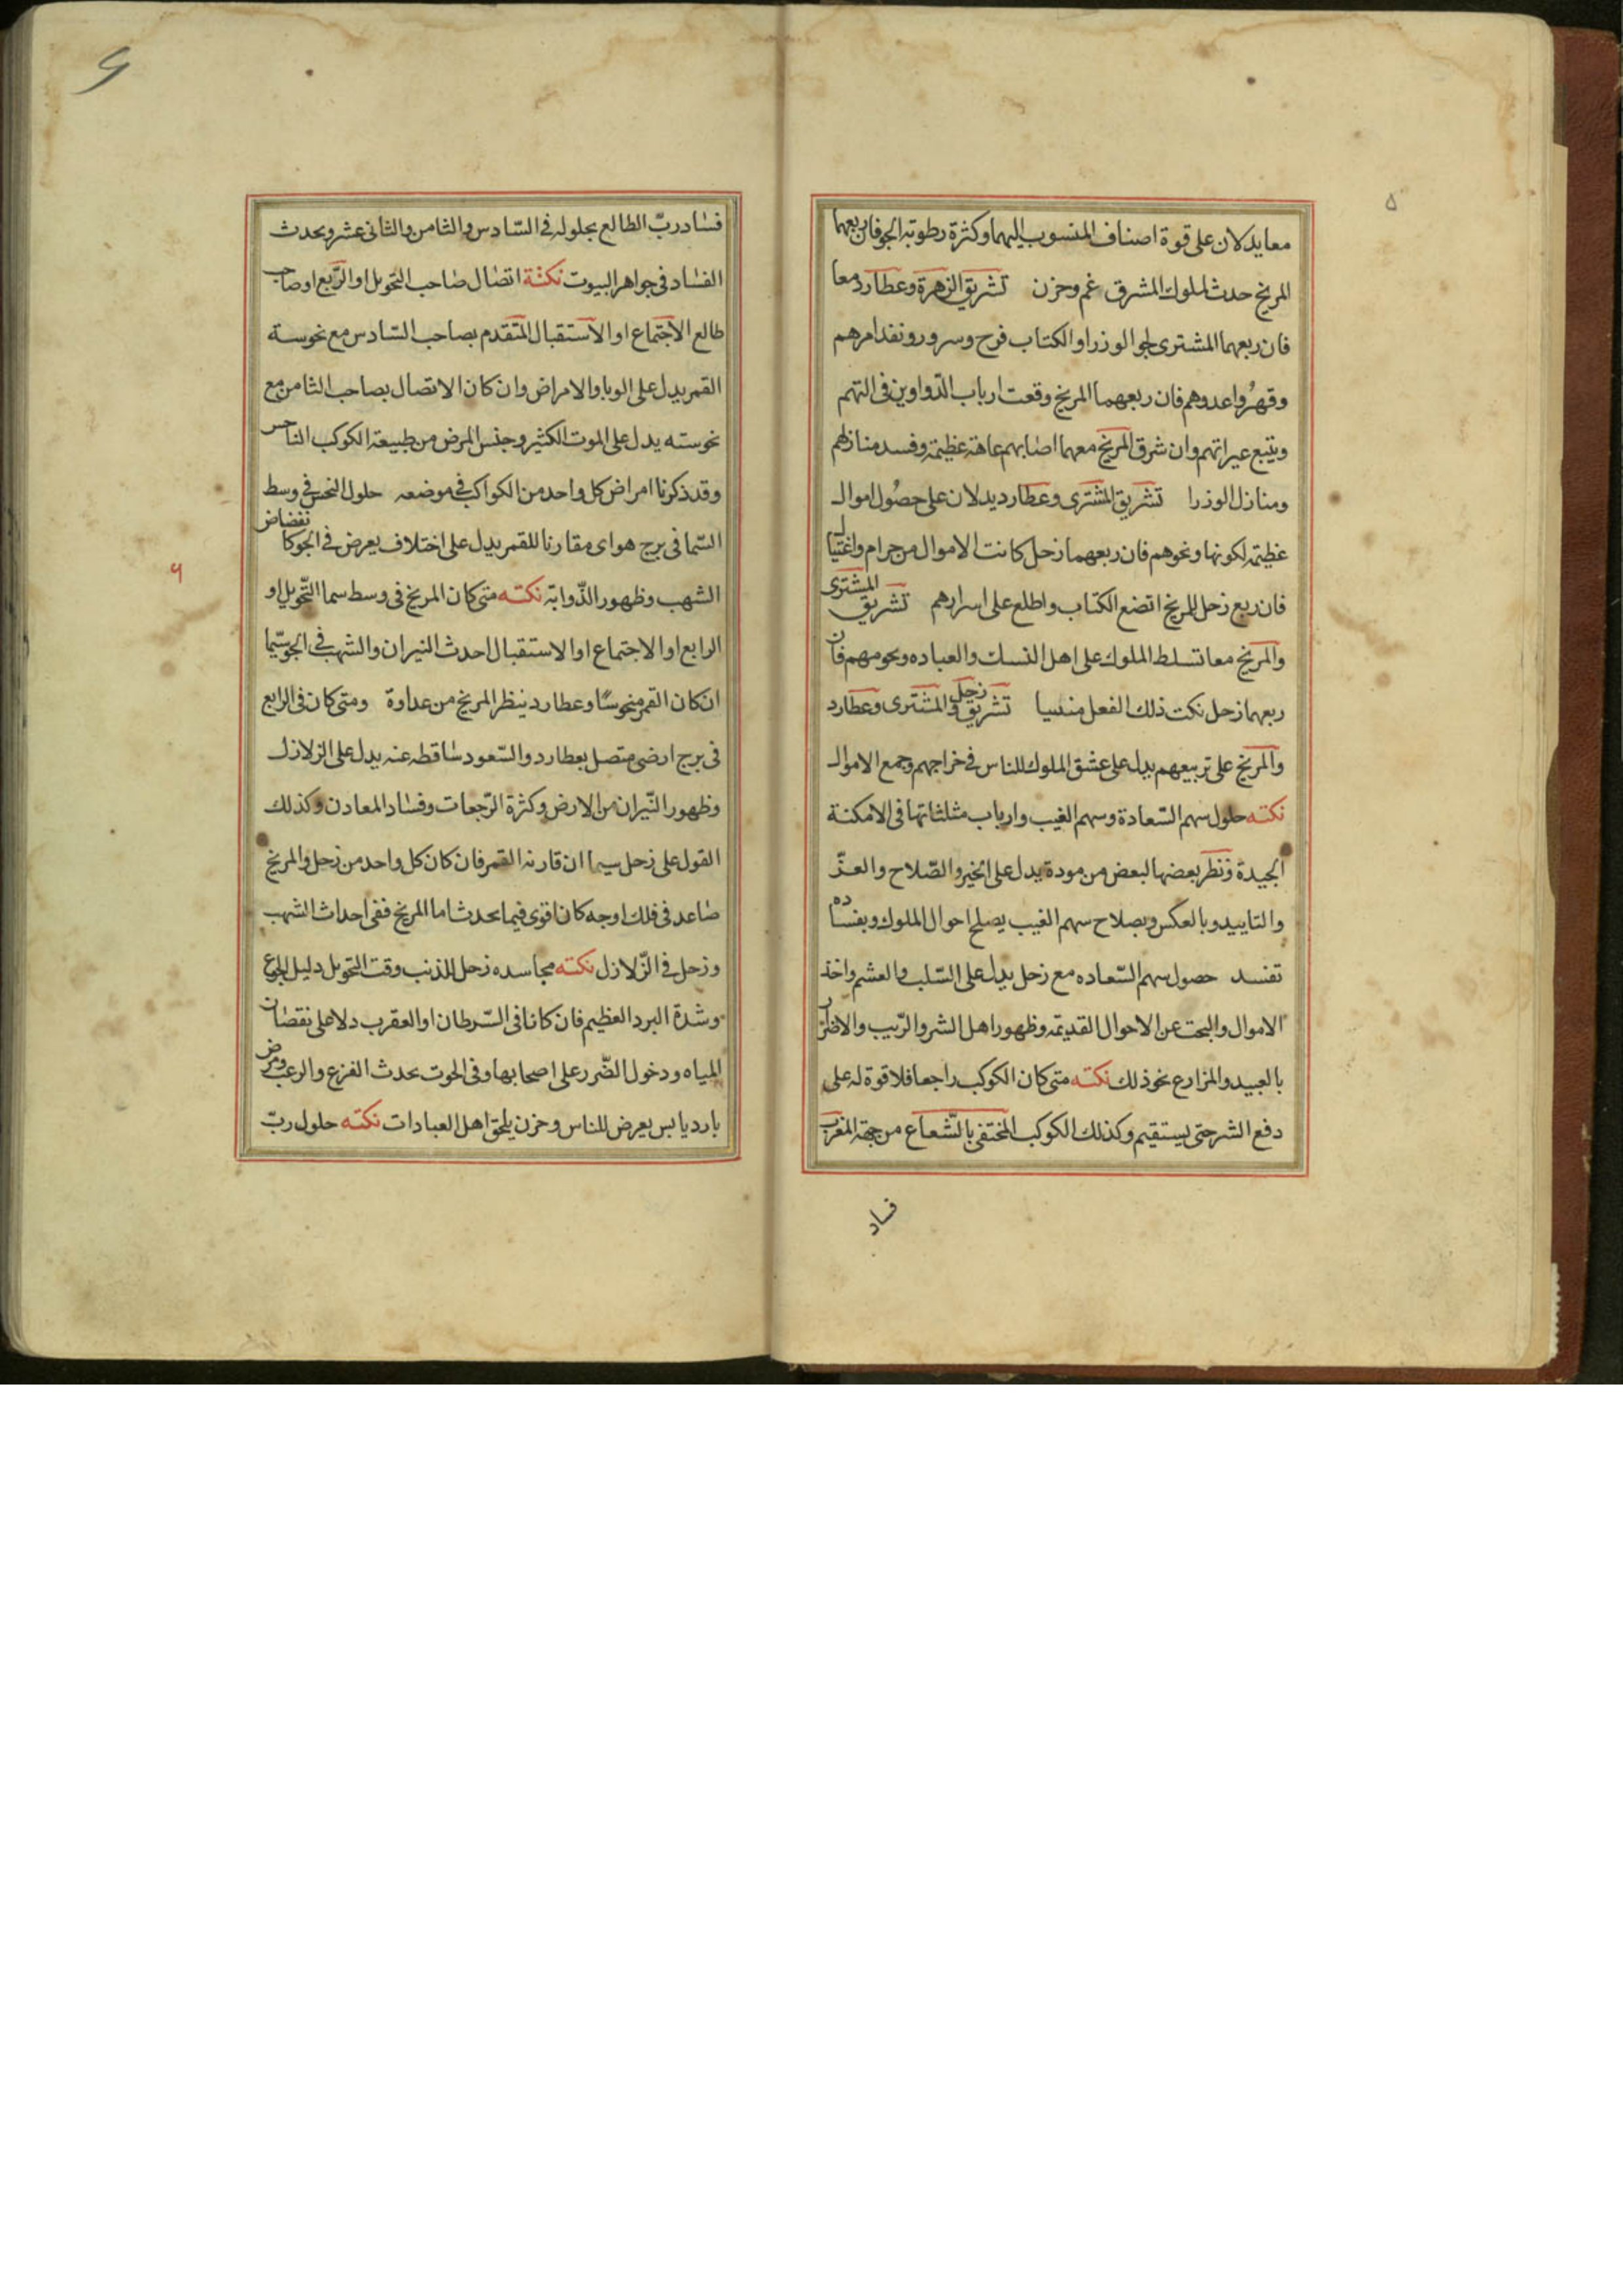 ٥
معا يدلان على قوة اصناف المنسوب اليهما وكثرة رطوبة الجو فان ربعهما
المريخ حدث لملوك المشرق غم وحزن تشريق الزهرة وعطارد معا
فان ربعهما المشترى الوزرا والكتاب فرح وسرور ونفد امرهم
وقهروا عدوهم فان ربعهما المريخ وقعت ارباب الدواوين فى التهم
ويتبع عيراتهم وان شرق المريخ معهما اصابهم عاهة عظيمة وفسد منازلهم
ومنازل الوزرا تشريق المشترى وعطارد يدلان على حصول اموال
عظيمة لكونها ونحوهم فان ربعهما زحل كانت الاموال من حرام واغتيال
فان ربع زحل المريخ اتضع الكتاب واطلع على اسرارهم تشريق المشترى
والمريخ معا تسلط الملوك على اهل النسك والعباده ونحومهم فان
ربعهما زحل نكت ذلك الفعل تشريق زحل والمشترى وعطارد
والمريخ على تربيعهم يدل على عشق الملوك للناس فى خراجهم وجمع الاموال
نكته حلول سهم السعادة وسهم الغيب وارباب مثلثاتها فى الامكنة
الجيدة ونظر بعضها لبعض من مودة يدل على الخير والصلاح والعز
والتاييد وبالعكس وبصلاح سهم الغيب يصلح احوال الملوك وبفساده
تفسد حصول سهم السعاده مع زحل يدل على السلب والعشم واخذ
الاموال والبحث عن الاحوال القديمة وظهور اهل الشر والريب والاضرار
بالعبيد والمزارع نحو ذلك نكته متى كان الكوكب راجعا فلا قوة له على
دفع الشر حتى يستقيم وكذلك الكوكب المختفى بالشعاع من جهة المغرب
فساد
فساد رب الطالع بحلوله فى السادس والثامن والثانى عشر ويحدث
الفساد فى جواهر البيوت نكتة اتصال صاحب التحويل او الربع او صاحب
طالع الاجتماع او الاستقبال المتقدم بصاحب السادس مع نحوسة
القمر يدل على الوبا والامراض وان كان الاتصال بصاحب الثامن مع
نحوسته يدل على الموت الكثير وجنس المرض من طبيعة الكوكب الناحس
وقد ذكرنا امراض كل واحد من الكواكب فى موضعه حلول النحس فى وسط
السما فى برج هواى مقارنا للقمر يدل على اختلاف يعرض فى الجو كانقضاض
الشهب وظهور الذوابة نكته متى كان المريخ فى وسط سما التحويل او
الرابع او الاجتماع او الاستقبال احدث النيران والشهب فى الجو سيما
ان كان القمر منحوسا وعطارد ينظر المريخ من عداوة ومتى كان فى الرابع
فى برج ارضى متصل بعطارد والسعود ساقطه عنه يدل على الزلازل
وظهور النيران من الارض وكثرة الرجعات وفساد المعادن وكذلك
القول على زحل سيما ان قارنه القمر فان كان كل واحد من زحل والمريخ
صاعد فى فلك اوجه كانا قوى فيما يحدث اما المريخ ففى احداث الشهب
وزحل فى الزلازل نكته مجاسده زحل للذنب وقت التحويل دليل الجوع
وشدة البرد العظيم فان كانا فى السرطان او العقرب دلا على نقصان
المياه ودخول الضرر على اصحابها وفى الحوت يحدث الفزع والرعب ومرض
بارد يابس يعرض للناس وحزن يلحق اهل العبادات نكته حلول رب